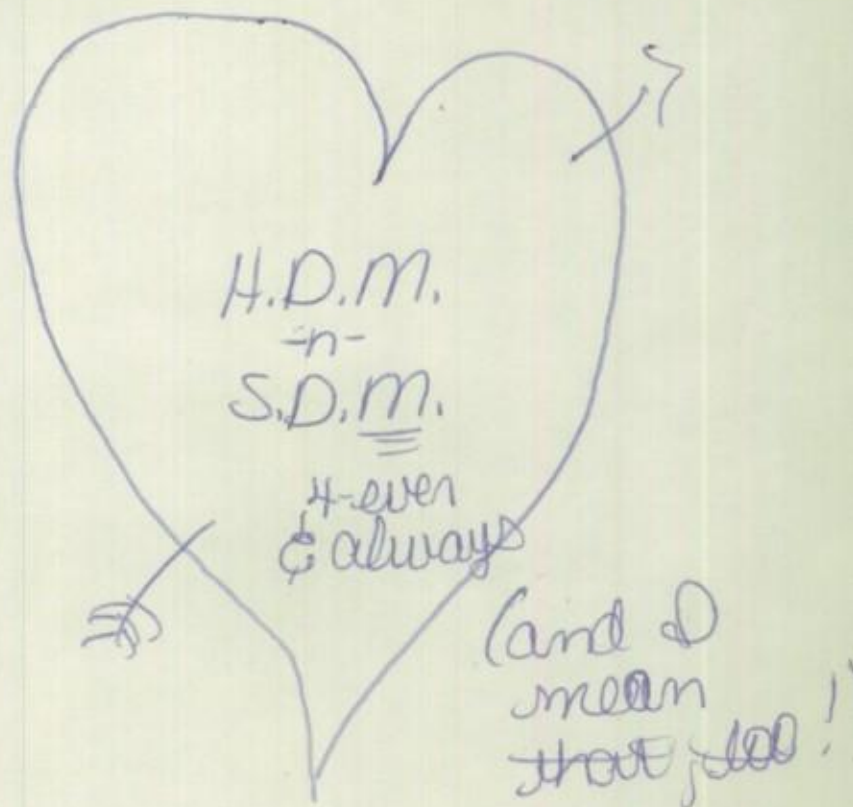 H.D.M.
-n-
S.D.M.
4-ever
& always
(and I
mean
that, too!